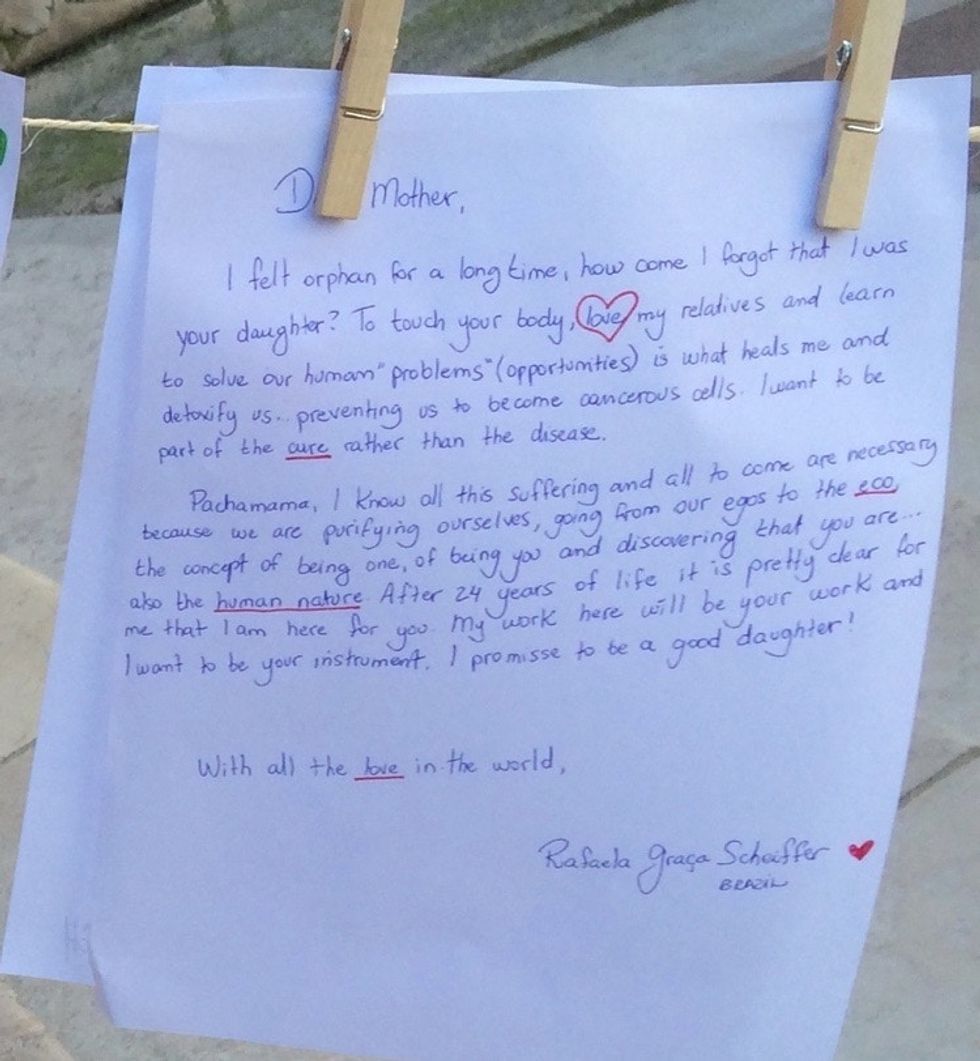 D Mother,
I felt orphan for a long time, how come I forgot that I was
your daughter? To touch your body, love my relatives and learn
to solve our human "problems" (opportunities) is what heals me and
detoxify us... preventing us to become cancerous cells. I want to be
part of the cure rather than the disease.
Pachamama, I know all this suffering and all to come are necessary
because we are purifying ourselves, going from our egos to the eco,
the concept of being one, of being you and discovering that you are...
also the human nature. After 24 years of life it is pretty clear for
me that I am here for you. My work here will be your work and
I want to be your instrument. I promisse to be a good daughter!
With all the love in the world,
Rafaela Graça Scheiffer
BRAZIL